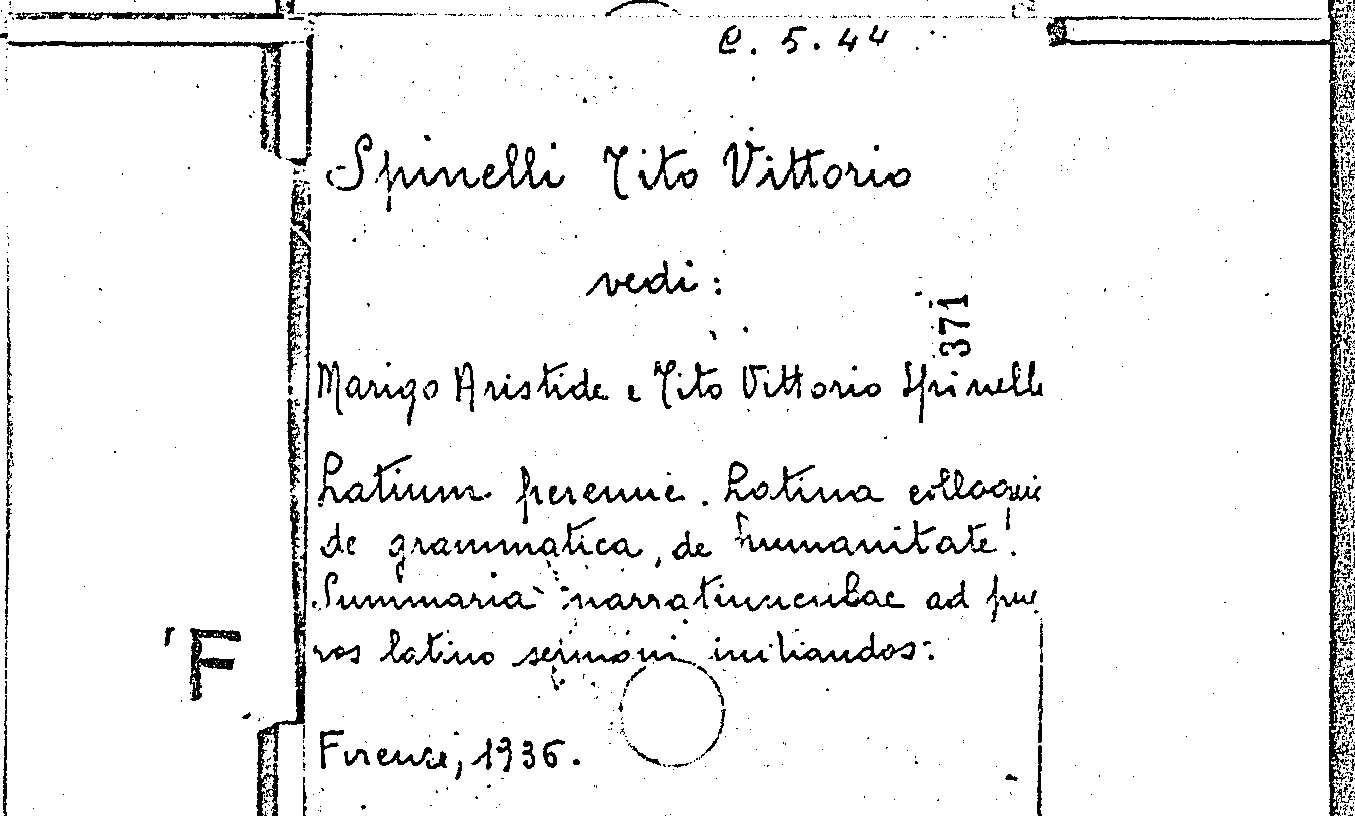 C. 5. 44
Spinelli Tito Vittorio
vedi:
371
Marigo Aristide e Tito Vittorio Spinelli
Latium perenne. Latina colloquia
de grammatica, de humanitate.
Summaria narratiunculae ad pue
ros latino sermoni initiandos.
F
Firenze, 1936.